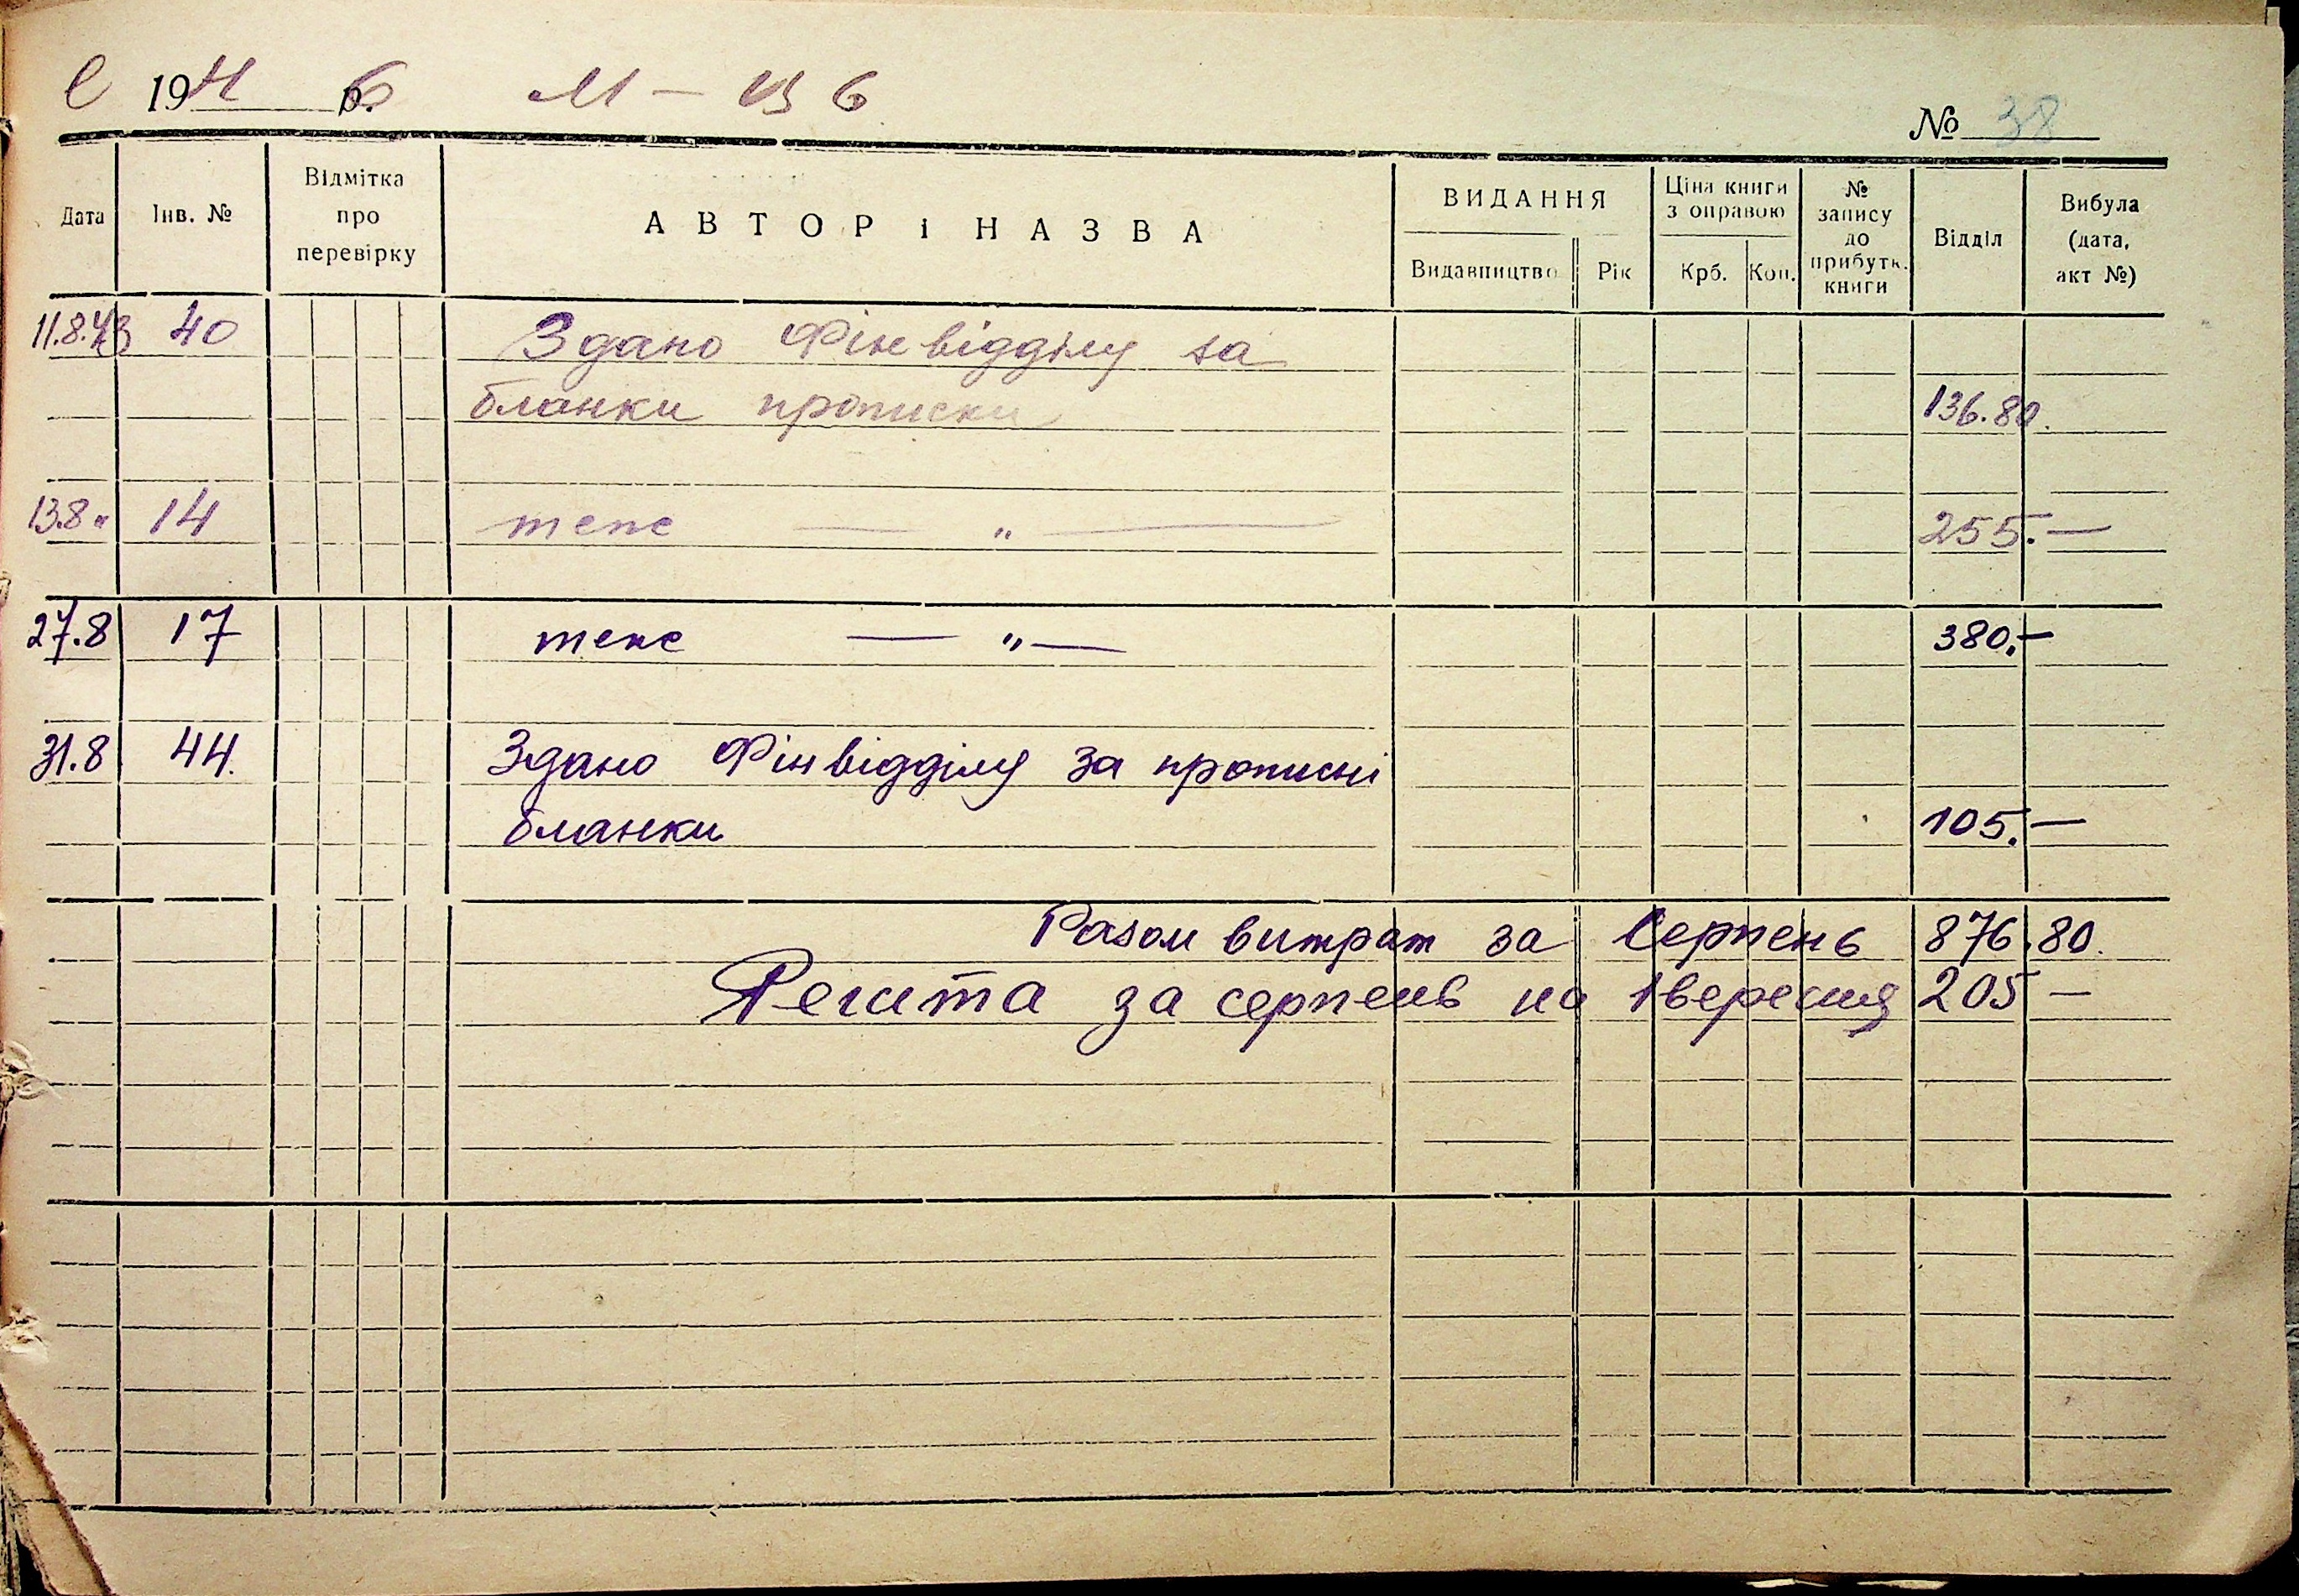 1941 р. М-ць
№ 38
Дата Інв. № Відмітка про перевірку АВТОР і НАЗВА ВИДАННЯ Видавництво Рік Ціна книги з оправою Крб. Коп. № запису до прибутк. книги Відділ Вибула (дата, акт №)
11.8.43 40 Здано Фінвідділу за
бланки прописки 136.80.
13.8 " 14 теже — " — 255.—
27.8 17 теже — " — 380.—
31.8 44. Здано Фінвідділу за прописні
бланки 105.—
Разом витрат за Серпень 876.80.
Решта за серпень на 1 вересня 205 —